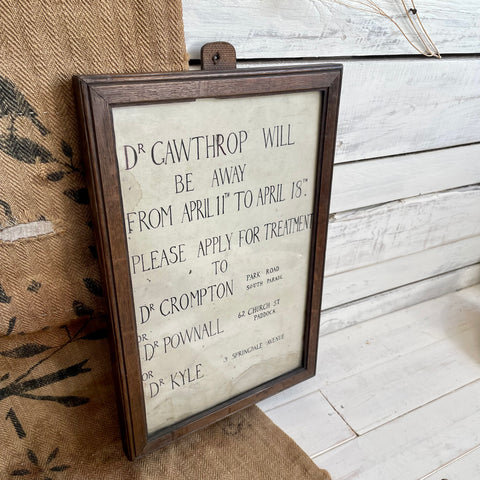 DR GAWTHROP WILL
BE AWAY
FROM APRIL 11TH TO APRIL 18TH.
PLEASE APPLY FOR TREATMENT
TO
DR CROMPTON PARK ROAD
SOUTH PARADE
OR
DR POWNALL 62 CHURCH ST
PADDOCK
OR
DR KYLE 3 SPRINGDALE AVENUE